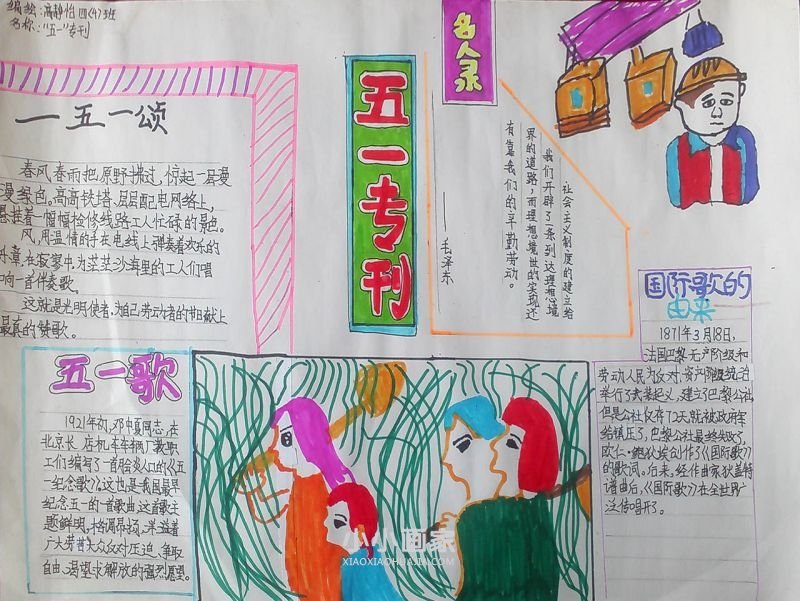 编绘:高静怡 四(4)班
名称:“五一”专刊
一五一颂
春风春雨把原野拂过,惊起一层漫
漫绿色。高高铁塔、层层配电网络上,
悬挂着一幅幅检修线路工人忙碌的景色。
风,用温情的手在电线上弹奏着欢乐的
乐章,在寂寥中为茫茫沙海里的工人们唱
响一首伴奏歌。
这就是光明使者,为自己劳动者的
最真的赞歌。
五一专刊
名人录
社会主义制度的建立给
我们开辟了一条到达理想境
界的道路,而理想境世的实现还
有靠我们的辛勤劳动。
——毛泽东
国际歌的
由来
1871年3月18日,
法国巴黎无产阶级和
劳动人民为反对资产阶级统治
举行了武装起义,建立了巴黎公社
但是公社仅存72天就被政府军
给镇压了,巴黎公社最终失败了,
欧仁·鲍狄埃创作了《国际歌》
的歌词。后来,经作曲家狄盖特
谱曲后,《国际歌》在全世界广
泛传唱开了。
五一歌
1921年初,邓中夏同志,在
北京长 店机车车辆厂教职
工们编写了一首脍炙人口的《五
一纪念歌》这也是我国最早
纪念五一的一首歌曲,这首歌主
题鲜明,格调昂扬,洋溢着
广大劳苦大众反对压迫、争取
自由、渴望求解放的强烈愿望。
小小画家
XIAOXIAOHUAJIA.COM